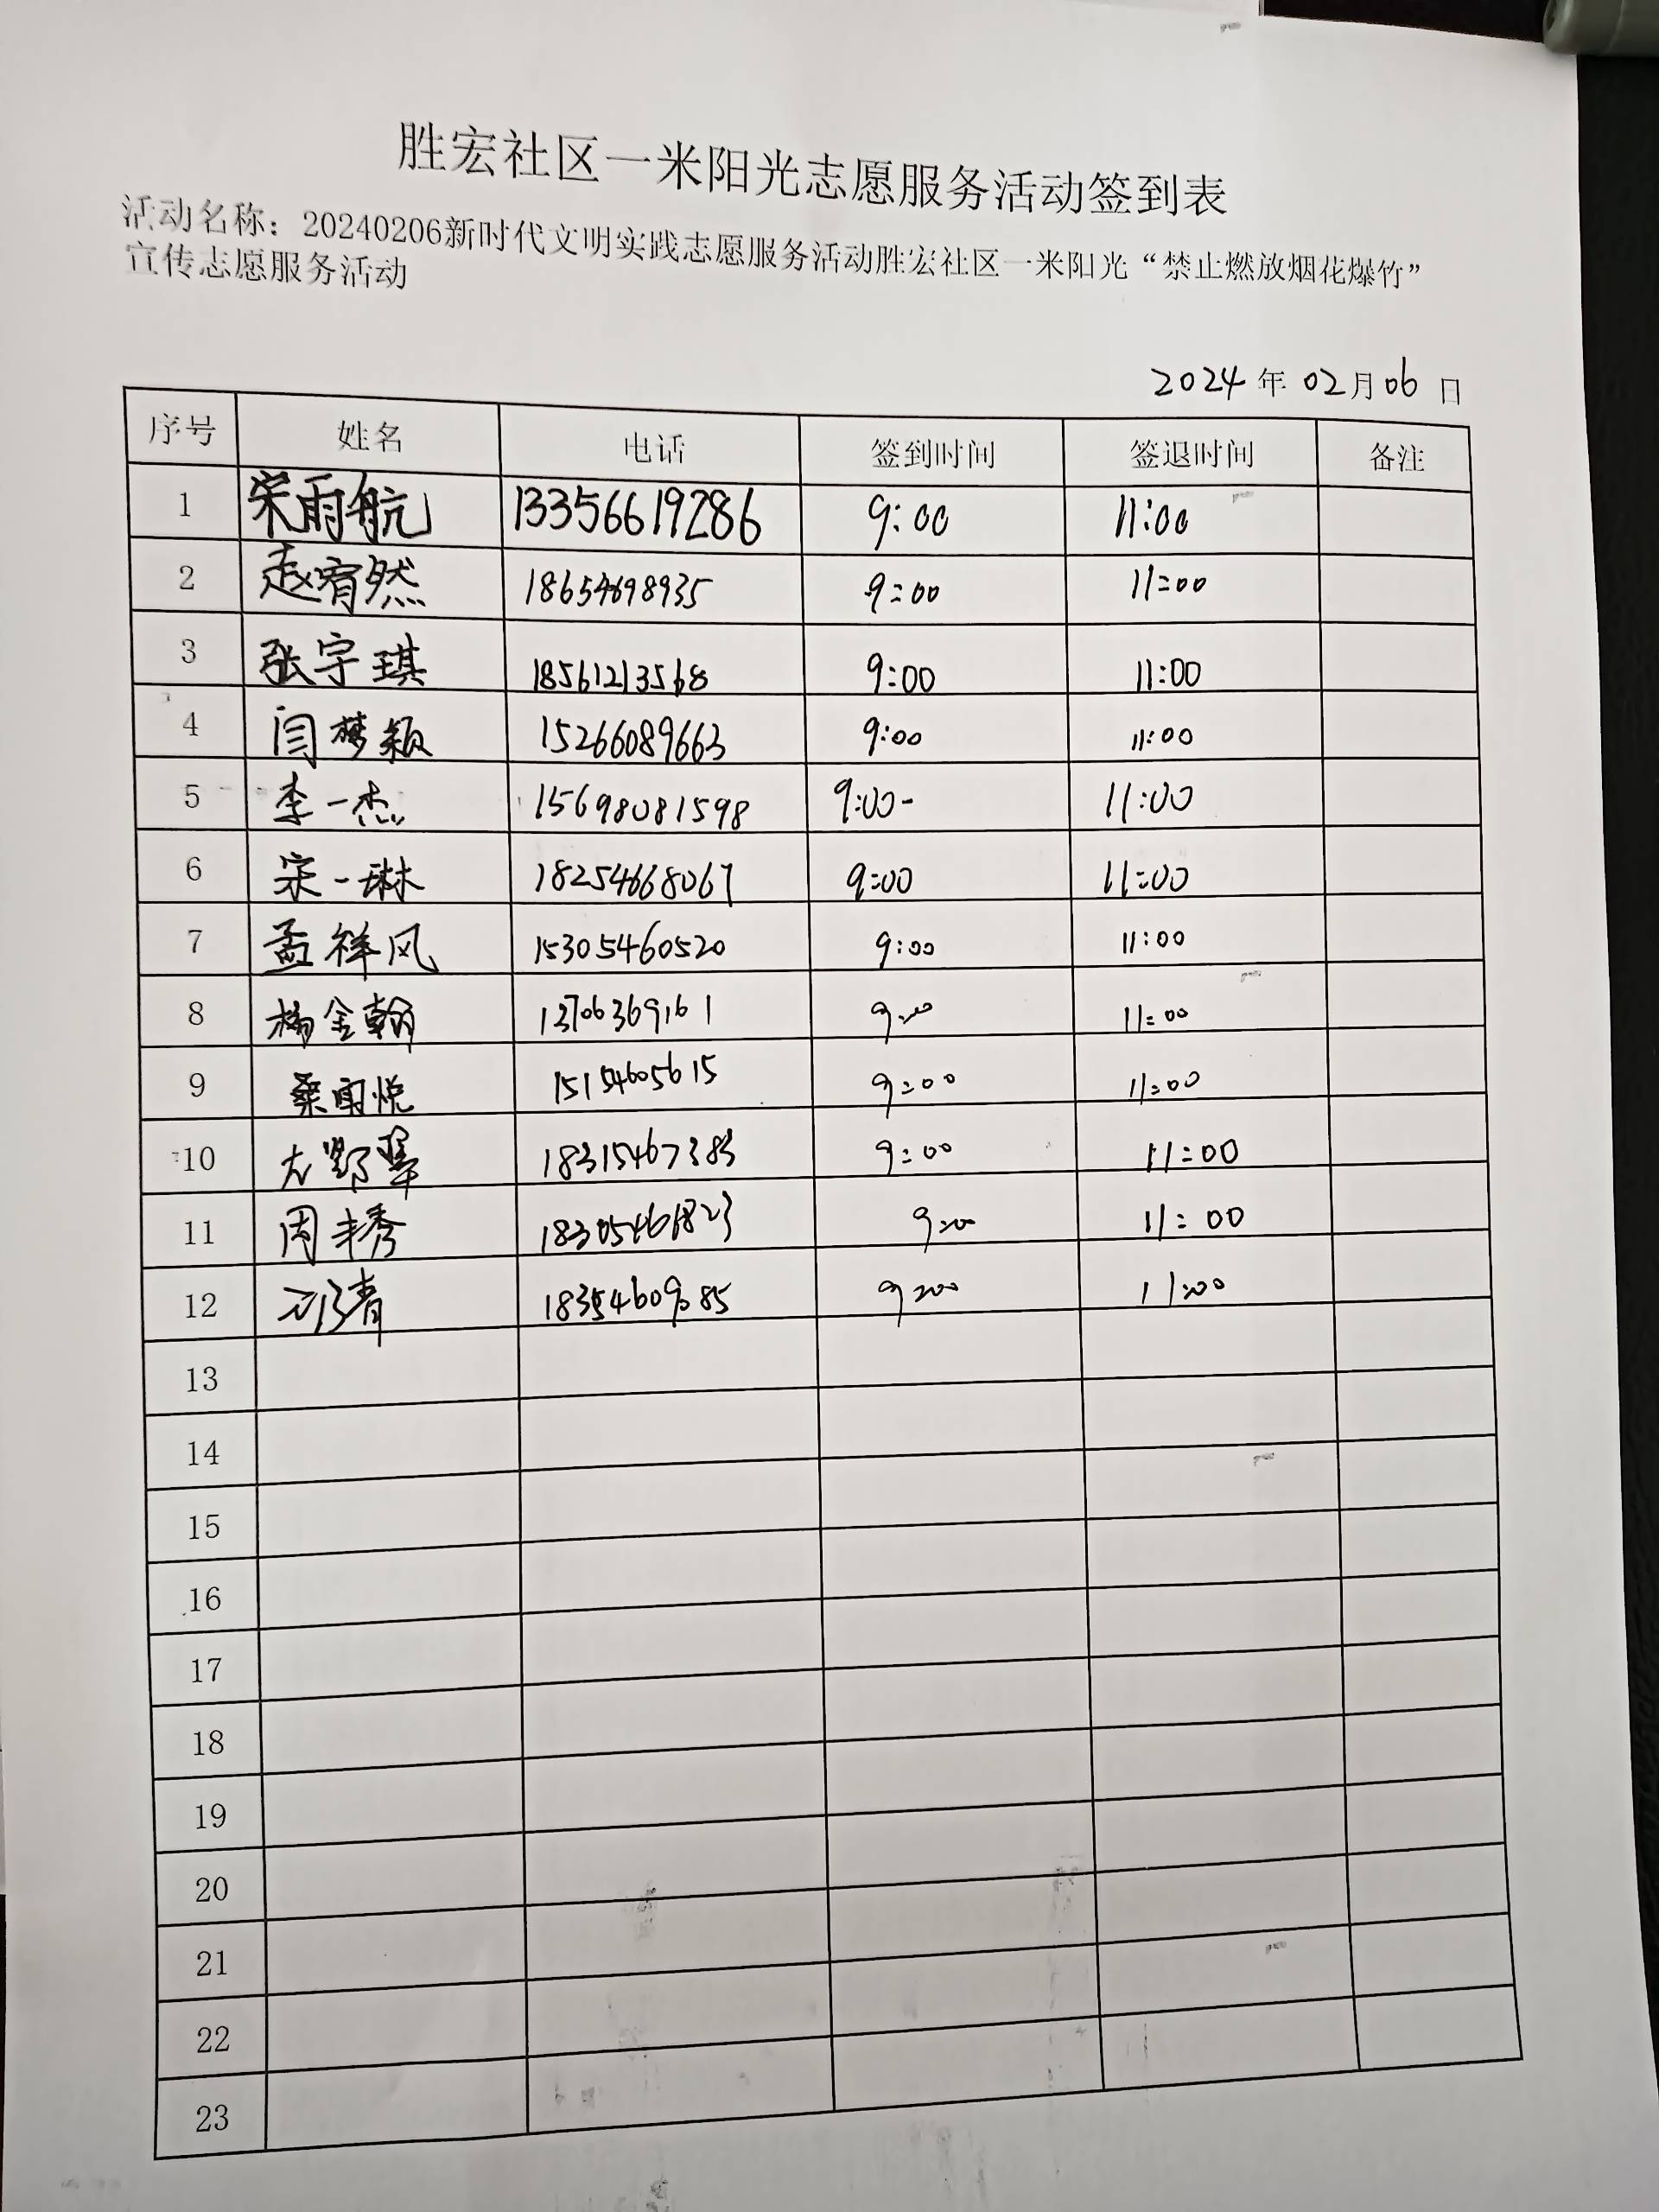 胜宏社区一米阳光志愿服务活动签到表
活动名称：20240206新时代文明实践志愿服务活动胜宏社区一米阳光“禁止燃放烟花爆竹”
宣传志愿服务活动
2024 年 02月 06 日
序号 姓名 电话 签到时间 签退时间 备注
1 宋雨航 13356619286 9:00 11:00
2 赵宥然 18654698935 9:00 11:00
3 张宇琪 18561213568 9:00 11:00
4 闫梦颖 15266089663 9:00 11:00
5 李一杰 15698081598 9:00- 11:00
6 宋一琳 18254668067 9:00 11:00
7 孟祥风 15305460520 9:00 11:00
8 杨金翰 13706369161 9:00 11:00
9 桑雨悦 15154605615 9:00 11:00
10 18315467383 9:00 11:00
11 周丰秀 18305461823 9:00 11:00
12 18354609085 9:00 11:00
13
14
15
16
17
18
19
20
21
22
23